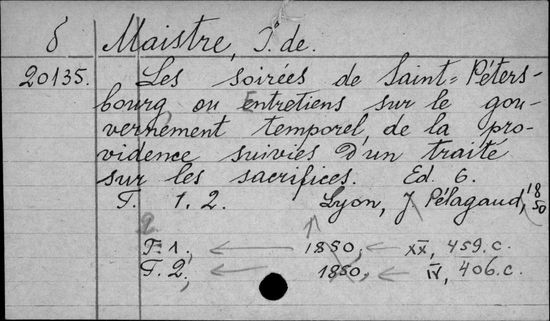 δ Maistre, J. de.
20135. Les soirées de Saint=Péters-
bourg ou Entretiens sur le gou-
vernement temporel, de la pro-
vidence suivies d'un traité
sur les sacrifices. Ed. 6.
T. 1. 2. Lyon, J Pélagaud, 1850
2
T. 1, ← 1850, ← XX, 459. c.
T. 2, ← 1850, ← IV, 406. c.